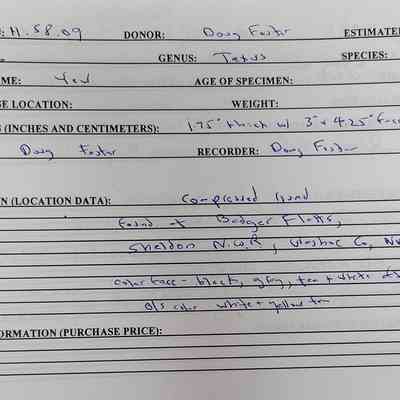 : H.58.09 DONOR: Doug Foster ESTIMATED
GENUS: Taxus SPECIES:
ME: Yew AGE OF SPECIMEN:
GE LOCATION: WEIGHT:
S (INCHES AND CENTIMETERS): 1.75" thick w/ 3" x 4.25" face
Doug Foster RECORDER: Doug Foster
N (LOCATION DATA): Compressed
found at Badger Flatts,
Sheldon N.W.R, Washoe Co, NV
color face - black, gray, tan + white
o/s color white + yellow tan
FORMATION (PURCHASE PRICE):